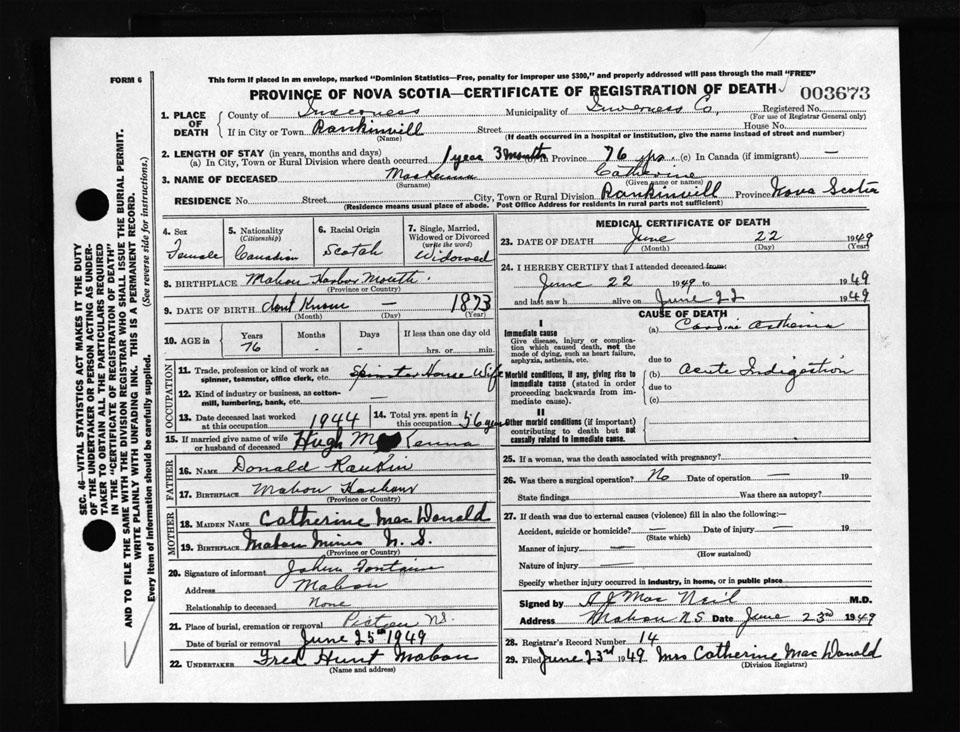 FORM 6
This form if placed in an envelope, marked "Dominion Statistics—Free, penalty for improper use $300," and properly addressed will pass through the mail "FREE"
PROVINCE OF NOVA SCOTIA—CERTIFICATE OF REGISTRATION OF DEATH
003673
1. PLACE OF DEATH
County of Inverness Municipality of Inverness Co. Registered No.
(For use of Registrar General only)
If in City or Town Rankinvill Street House No.
(Name) (If death occurred in a hospital or institution, give the name instead of street and number)
2. LENGTH OF STAY (in years, months and days)
(a) In City, Town or Rural Division where death occurred 1 year 3 months Province 76 yrs. (c) In Canada (if immigrant) —
3. NAME OF DECEASED MacKenna Catherine
(Surname) (Given name or names)
RESIDENCE No. Street City, Town or Rural Division Rankinvill Province Nova Scotia
(Residence means usual place of abode. Post Office Address for residents in rural parts not sufficient)
4. Sex
Female
5. Nationality
(Citizenship)
Canadian
6. Racial Origin
Scotch
7. Single, Married, Widowed or Divorced
(write the word)
Widowed
8. BIRTHPLACE Mabou Harbor Mouth
(Province or Country)
9. DATE OF BIRTH dont Know — 1873
(Month) (Day) (Year)
10. AGE in Years Months Days If less than one day old
76 - - hrs. or min.
OCCUPATION
11. Trade, profession or kind of work as spinner, teamster, office clerk, etc. Spinster House Wife
12. Kind of industry or business, as cotton-mill, lumbering, bank, etc. —
13. Date deceased last worked at this occupation 1944
14. Total yrs. spent in this occupation 56 years
15. If married give name of wife or husband of deceased Hugh Mc Kenna
FATHER
16. NAME Donald Rankin
17. BIRTHPLACE Mabou Harbour
(Province or Country)
MOTHER
18. MAIDEN NAME Catherine MacDonald
19. BIRTHPLACE Mabou Mines N. S.
(Province or Country)
20. Signature of informant
Address Mabou
Relationship to deceased None
21. Place of burial, cremation or removal
Date of burial or removal June 25th 1949
22. UNDERTAKER Fred Hunt Mabou
(Name and address)
MEDICAL CERTIFICATE OF DEATH
23. DATE OF DEATH June 22 1949
(Month) (Day) (Year)
24. I HEREBY CERTIFY that I attended deceased from:
June 22 1949 to 1949
and last saw h alive on June 22 1949
CAUSE OF DEATH
I
Immediate cause
Give disease, injury or complication which caused death, not the mode of dying, such as heart failure, asphyxia, asthenia, etc.
(a) Cardiac Asthenia
due to
Morbid conditions, if any, giving rise to immediate cause (stated in order proceeding backwards from immediate cause).
(b) Acute Indigestion
due to
(c)
II
Other morbid conditions (if important) contributing to death but not causally related to immediate cause.
25. If a woman, was the death associated with pregnancy?
26. Was there a surgical operation? No Date of operation — 19
State findings Was there an autopsy?
27. If death was due to external causes (violence) fill in also the following:—
Accident, suicide or homicide? — Date of injury — 19
(State which)
Manner of injury —
(How sustained)
Nature of injury —
Specify whether injury occurred in industry, in home, or in public place
Signed by A J Mac Neil M.D.
Address Mabou N S Date June 23rd 1949
28. Registrar's Record Number 14
29. Filed June 23rd 1949 Mrs Catherine MacDonald
(Division Registrar)
SEC. 46—VITAL STATISTICS ACT MAKES IT THE DUTY
OF THE UNDERTAKER OR PERSON ACTING AS UNDERTAKER TO OBTAIN ALL THE PARTICULARS REQUIRED
IN THE "CERTIFICATE OF REGISTRATION OF DEATH"
AND TO FILE THE SAME WITH THE DIVISION REGISTRAR WHO SHALL ISSUE THE BURIAL PERMIT.
WRITE PLAINLY WITH UNFADING INK. THIS IS A PERMANENT RECORD.
Every item of Information should be carefully supplied. (See reverse side for instructions.)